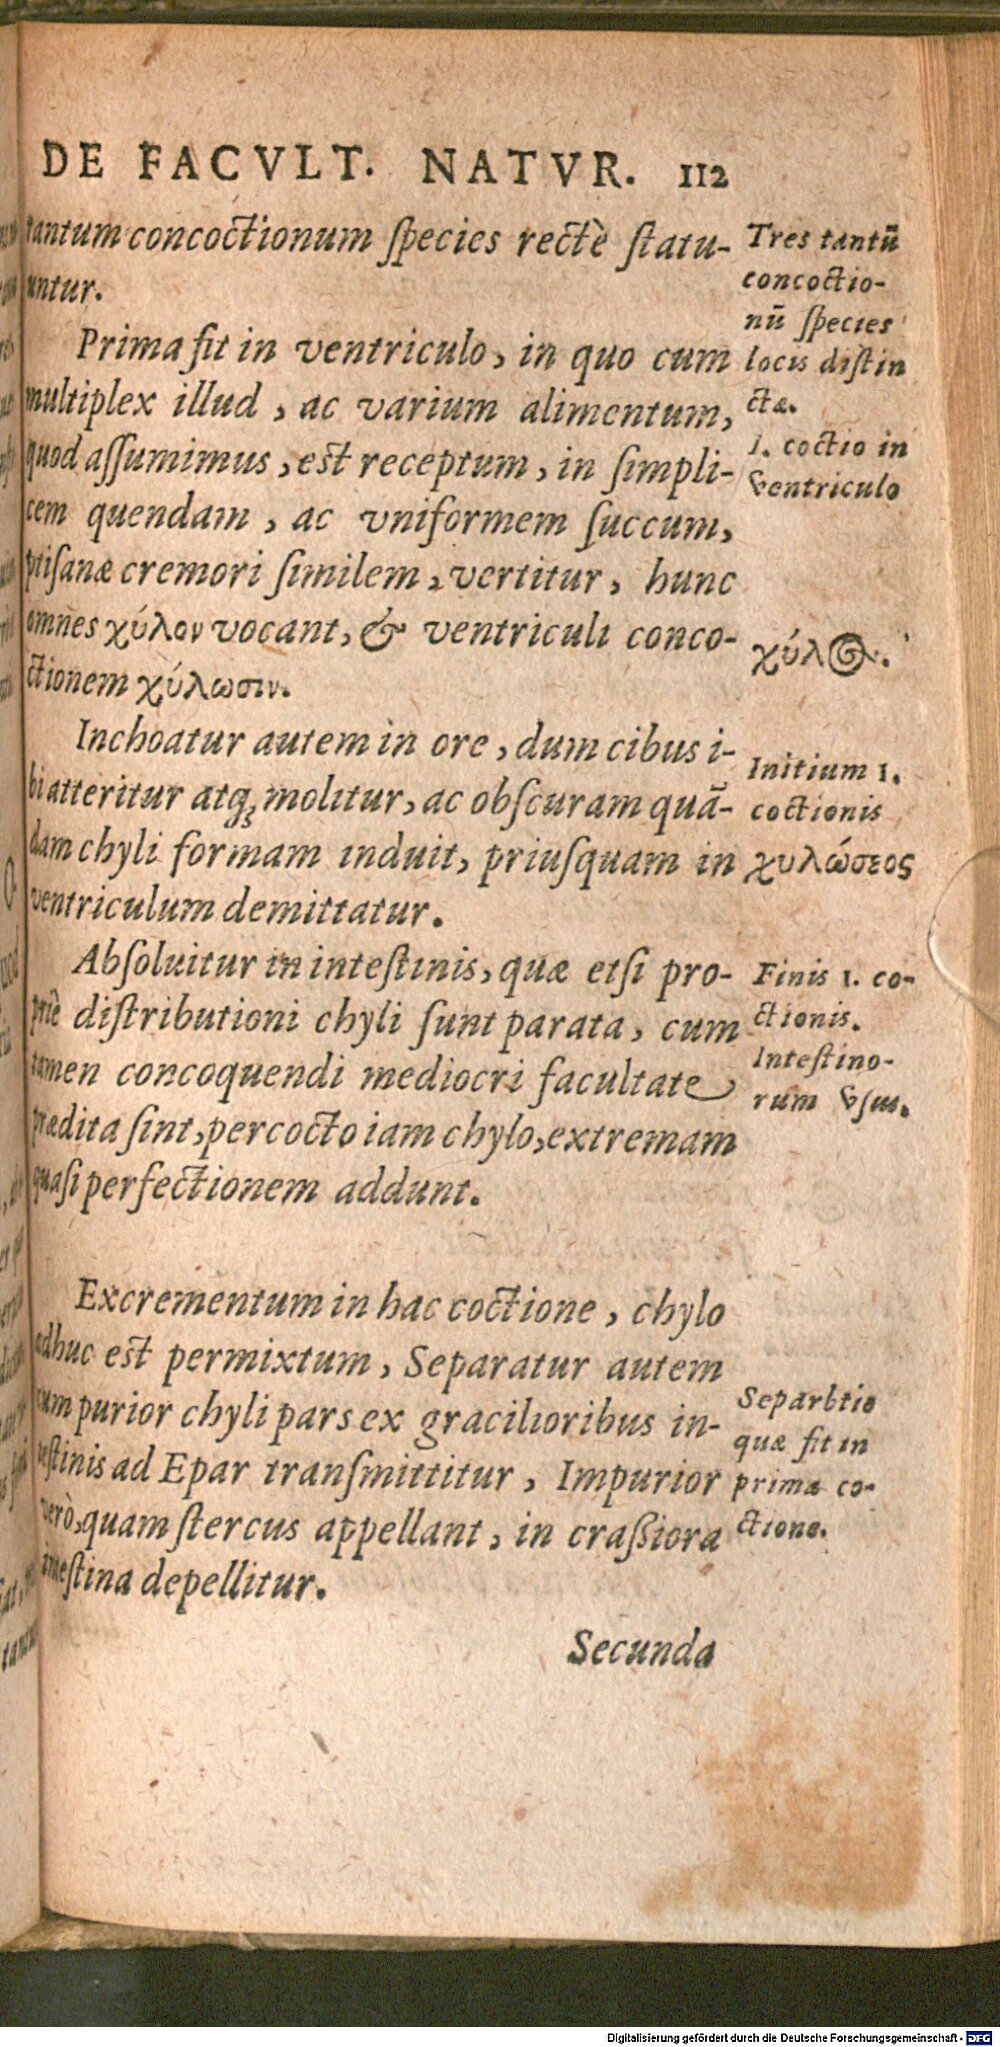 DE FACVLT. NATVR. 112
tantum concoctionum ſpecies rectè ſtatu-
untur.
Prima fit in ventriculo, in quo cum
multiplex illud, ac varium alimentum,
quod aſſumimus, eſt receptum, in ſimpli-
cem quendam, ac vniformem ſuccum,
ptiſanæ cremori ſimilem, vertitur, hunc
omnes χύλον vocant, & ventriculi conco-
ctionem χύλωσιν.
Inchoatur autem in ore, dum cibus i-
bi atteritur atq; molitur, ac obſcuram quā-
dam chyli formam induit, priuſquam in
ventriculum demittatur.
Abſoluitur in inteſtinis, quæ etſi pro-
priè diſtributioni chyli ſunt parata, cum
tamen concoquendi mediocri facultate
prædita ſint, percocto iam chylo, extremam
quaſi perfectionem addunt.
Excrementum in hac coctione, chylo
adhuc eſt permixtum, Separatur autem
cum purior chyli pars ex gracilioribus in-
teſtinis ad Epar tranſmittitur, Impurior
verò, quam ſtercus appellant, in craßiora
inteſtina depellitur.
Secunda
Tres tantū
concoctio-
nū ſpecies
locis diſtin
ctæ.
1. coctio in
ventriculo
χύλος.
Initium 1.
coctionis
χυλώσεος
Finis 1. co-
ctionis.
Inteſtino-
rum vſus.
Separbtio
quæ fit in
prima co-
ctione.
Digitalisierung gefördert durch die Deutsche Forschungsgemeinschaft - DFG